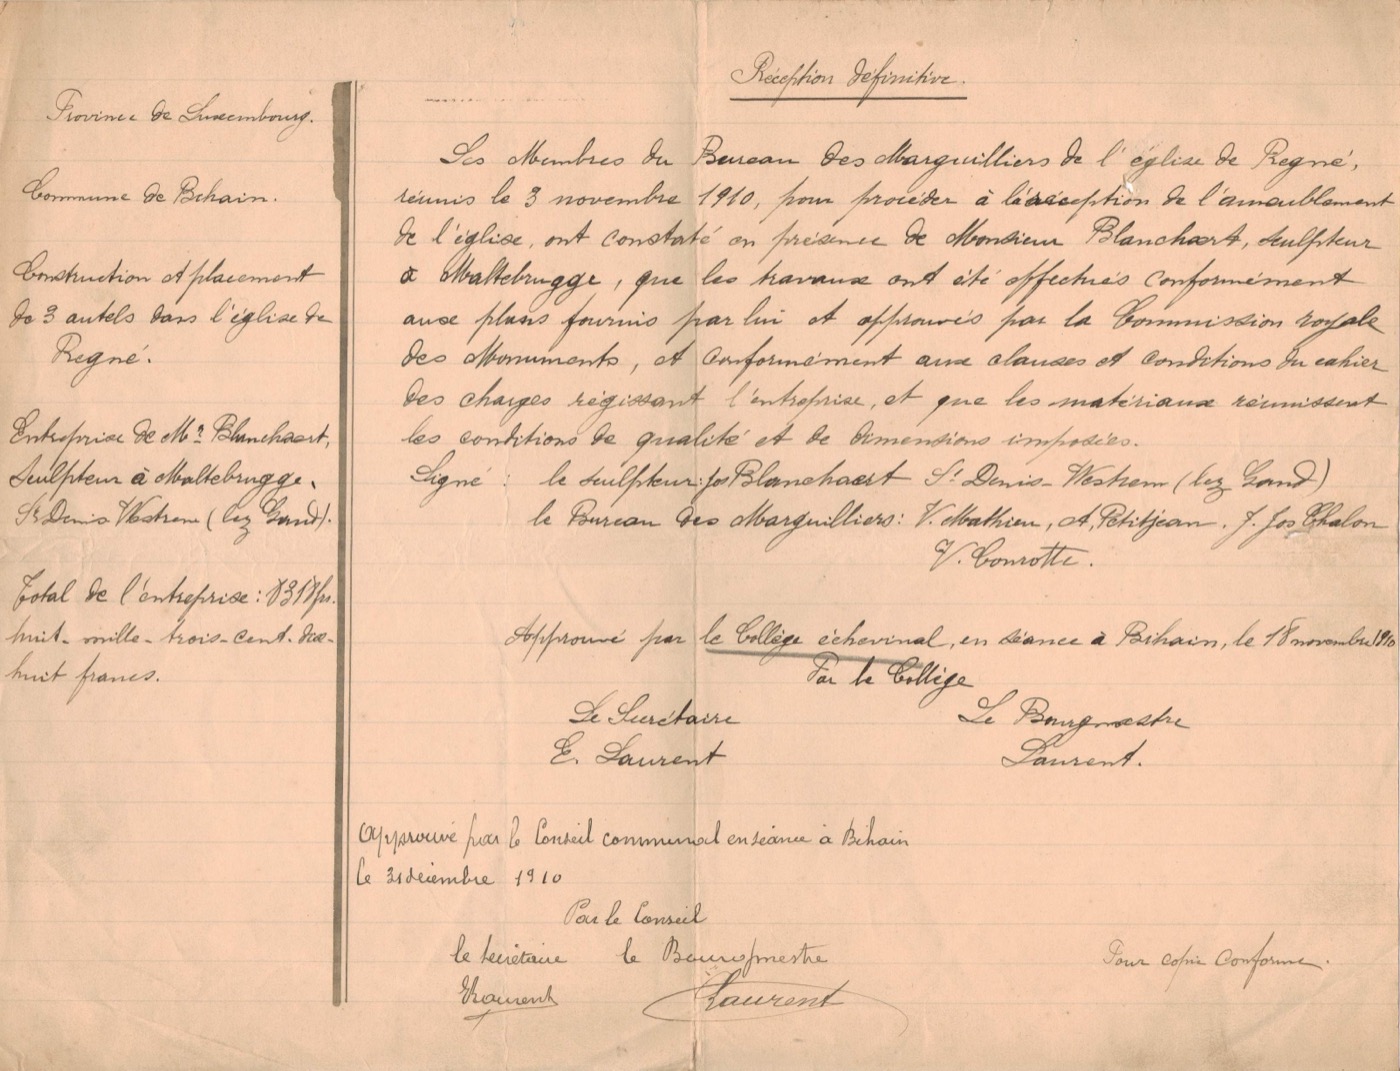 Province de Luxembourg.
Commune de Bihain.
Construction et placement
de 3 autels dans l'église de
Regné.
Entreprise de Mr Blanchaert,
sculpteur à Maltebrugge,
St Denis-Westrem (lez Gand).
Total de l'entreprise : 8318 frs.
huit-mille-trois-cent-dix-
huit francs.
Réception définitive.
Les Membres du Bureau des Marguilliers de l'église de Regné,
réunis le 3 novembre 1910, pour procéder à la réception de l'ameublement
de l'église, ont constaté en présence de Monsieur Blanchaert, sculpteur
à Maltebrugge, que les travaux ont été effectués conformément
aux plans fournis par lui et approuvés par la Commission royale
des Monuments, et conformément aux clauses et conditions du cahier
des charges régissant l'entreprise, et que les matériaux réunissent
les conditions de qualité et de dimensions imposées.
Signé : le sculpteur: Jos Blanchaert St Denis-Westrem (lez Gand)
le Bureau des Marguilliers: V. Mathieu, A, Petitjean, J. Jos Chalon
V. Conrotte.
Approuvé par le Collège échevinal, en séance à Bihain, le 18 novembre 1910
Par le Collège
Le Secrétaire Le Bourgmestre
E. Laurent Laurent.
Approuvé par le Conseil communal en séance à Bihain
le 31 décembre 1910
Par le Conseil
le secrétaire le Bourgmestre Pour copie conforme.
ELaurent Laurent